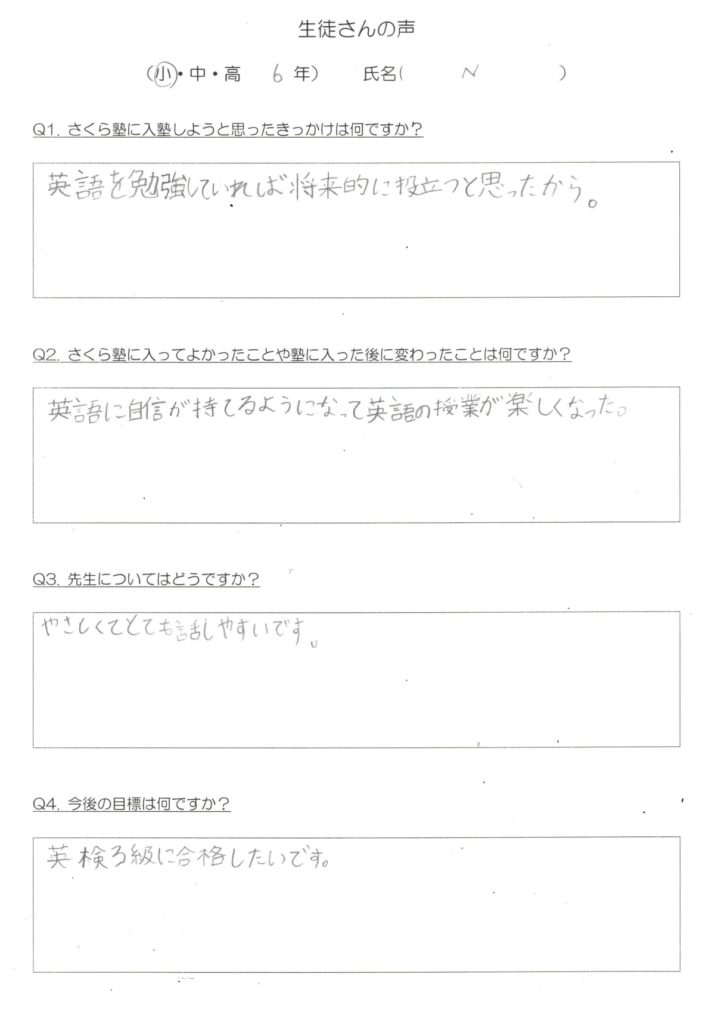 生徒さんの声
(小・中・高 6年) 氏名( N )
Q1. さくら塾に入塾しようと思ったきっかけは何ですか?
英語を勉強していれば将来的に役立つと思ったから。
Q2. さくら塾に入ってよかったことや塾に入った後に変わったことは何ですか?
英語に自信が持てるようになって英語の授業が楽しくなった。
Q3. 先生についてはどうですか?
やさしくてとても話しやすいです。
Q4. 今後の目標は何ですか?
英検3級に合格したいです。